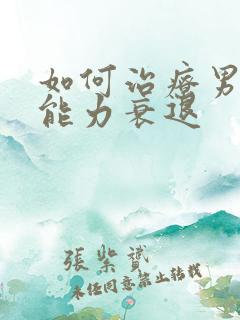 如何治疗男
能力衰退
張紫贇
未经同意禁止转载